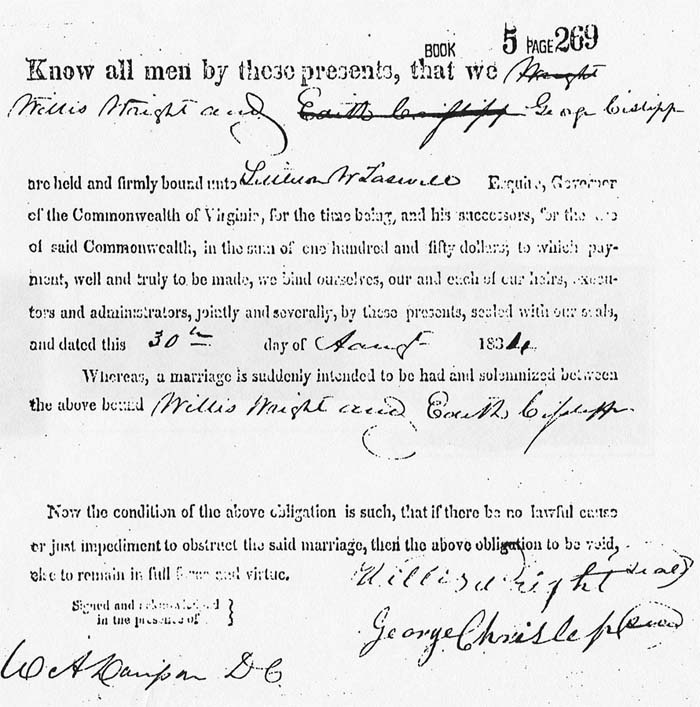 BOOK 5 PAGE 269
Know all men by these presents, that we Wright
Willis Wright and George Cislipp
are held and firmly bound unto W Tazwell Esquire, Governor
of the Commonwealth of Virginia, for the time being, and his successors, for the use
of said Commonwealth, in the sum of one hundred and fifty dollars; to which pay-
ment, well and truly to be made, we bind ourselves, our and each of our heirs, execu-
tors and administrators, jointly and severally, by these presents, sealed with our seals,
and dated this 30th day of Augt 1834
Whereas, a marriage is suddenly intended to be had and solemnized between
the above bound Willis Wright and
Now the condition of the above obligation is such, that if there be no lawful cause
or just impediment to obstruct the said marriage, then the above obligation to be void,
else to remain in full force and virtue.
Willis Wright (seal)
Signed and acknowledged
in the presence of
George Chrislep (seal)
D C